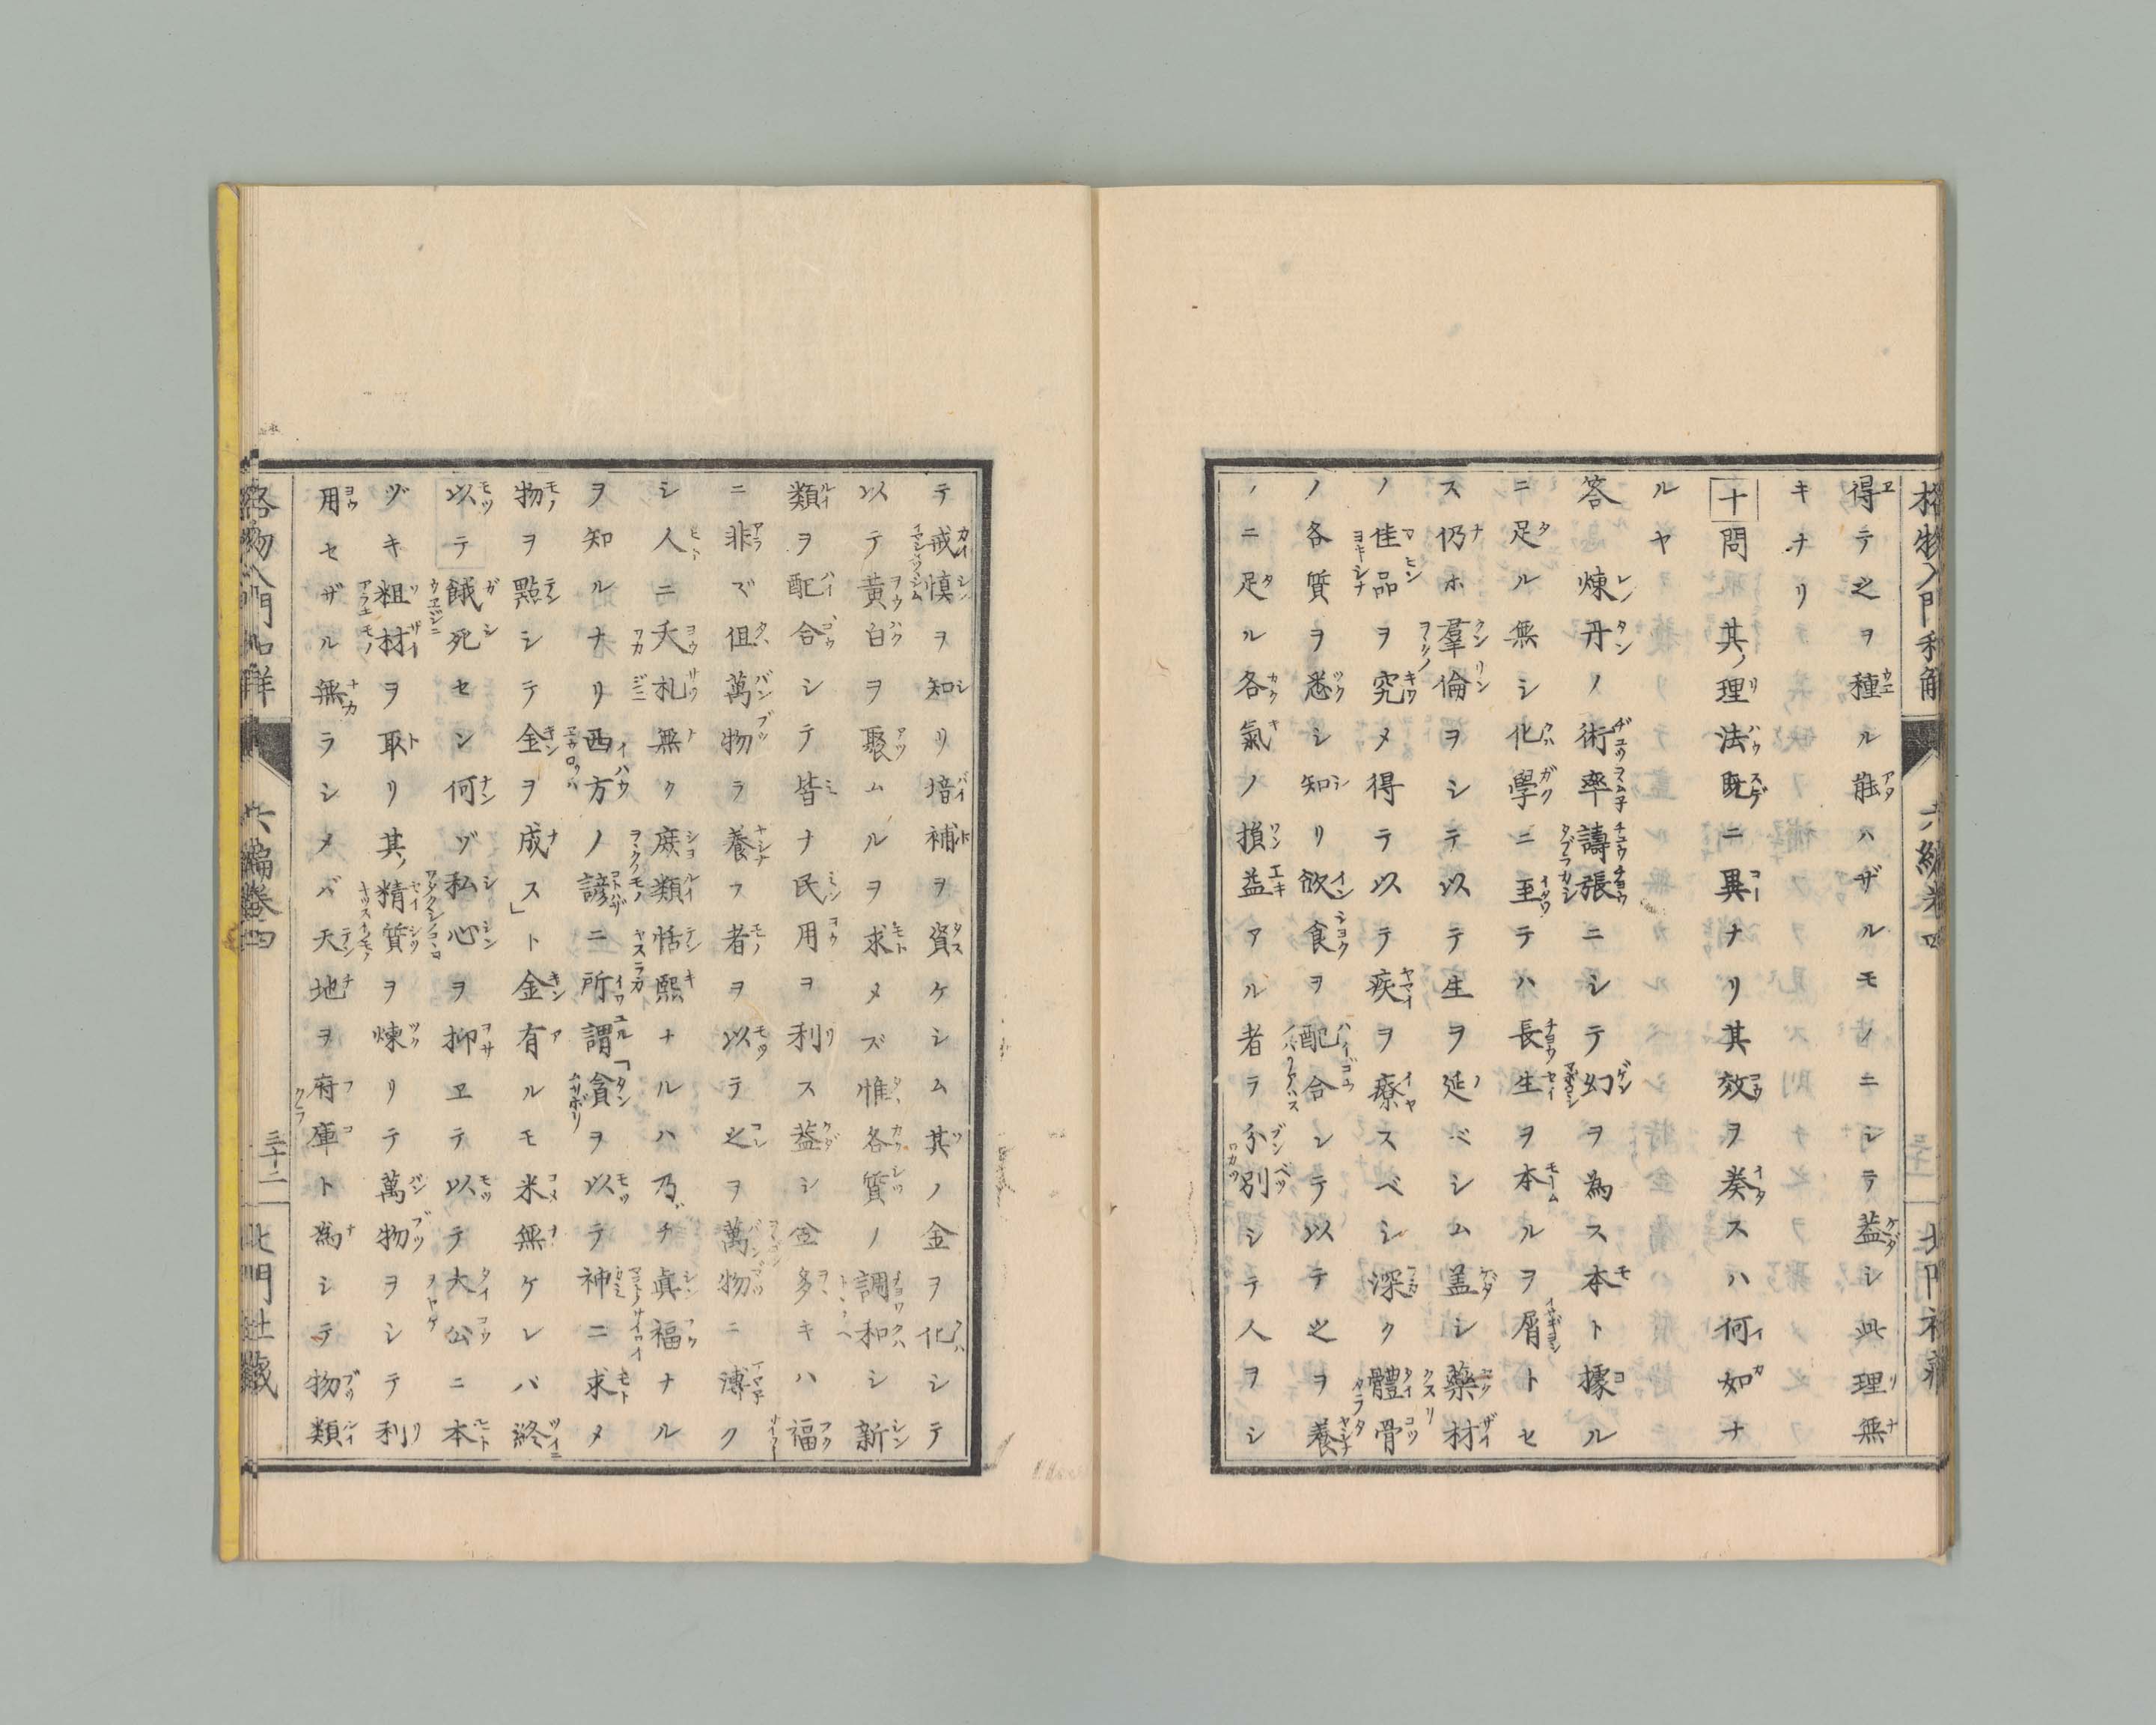 得テ之ヲ種ル能ハザルモノニシテ蓋シ此理無
キナリ
十問 其ノ理法既ニ異ナリ其效ヲ奏スハ何如ナ
ルヤ
答 煉丹ノ術率譸張ニシテ幻ヲ為ス本ト據ル
ニ足ル無シ化學ニ至テハ長生ヲ本ルヲ屑トセ
ス仍ホ羣倫ヲシテ以テ生ヲ延ベシム盖シ藥材
ノ佳品ヲ究メ得テ以テ疾ヲ療スベシ深ク體骨
ノ各質ヲ悉シ知リ飲食ヲ配合シテ以テ之ヲ養
ノニ足ル各氣ノ損益アル者ヲ分別シテ人ヲシ
テ戒慎ヲ知リ培補ヲ資ケシム其ノ金ヲ化シテ
以テ黄白ヲ聚ムルヲ求メズ惟各質ノ調和シ新
類ヲ配合シテ皆ナ民用ヲ利ス蓋シ金多キハ福
ニ非ズ但萬物ヲ養フ者ヲ以テ之ヲ萬物ニ溥ク
シ人ニ夭札無ク庶類恬熙ナルハ乃チ眞福ナル
ヲ知ルナリ西方ノ諺ニ所謂「貪ヲ以テ神ニ求メ
物ヲ點シテ金ヲ成ス」ト金有ルモ米無ケレバ終
以テ餓死セン何ヅ私心ヲ抑ヱテ以テ大公ニ本
ヅキ粗材ヲ取リ其ノ精質ヲ煉リテ萬物ヲシテ利
用セザル無ラシメバ天地ヲ府庫ト為シテ物類
六編卷四
三十二